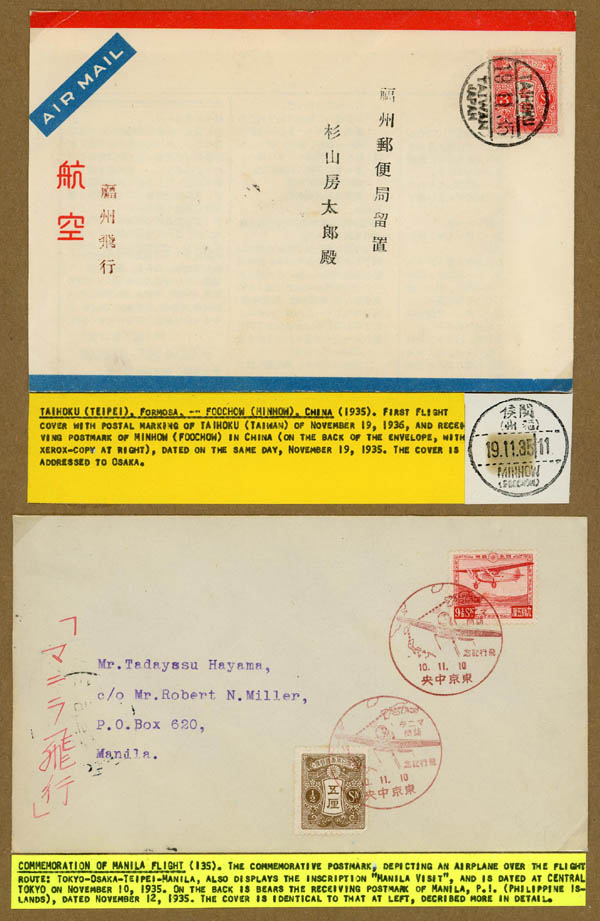 AIR MAIL
航空
福州飛行
福州郵便局留置
杉山房太郎殿
TAIHOKU
19.11.35
TAIWAN
JAPAN
3
Sn
TAIHOKU (TEIPEI), FORMOSA. -- FOOCHOW (MINHOW), CHINA (1935). FIRST FLIGHT
COVER WITH POSTAL MARKING OF TAIHOKU (TAIWAN) OF NOVEMBER 19, 1936, AND RECEI
VING POSTMARK OF MINHOW (FOOCHOW) IN CHINA (ON THE BACK OF THE ENVELOPE, WITH
XEROX-COPY AT RIGHT), DATED ON THE SAME DAY, NOVEMBER 19, 1935. THE COVER IS
ADDRESSED TO OSAKA.
閩侯
(福州)
19.11.35 11
MINHOW
(FOOCHOW)
9½Sn
マニラ
訪問
飛行記念
10.11.10
東京中央
「マニラ飛行」
Mr.Tadayssu Hayama,
c/o Mr.Robert N.Miller,
P.O.Box 620,
Manila.
マニラ
訪問
飛行記念
10.11.10
東京中央
½
五厘
Sn
COMMEMORATION OF MANILA FLIGHT (135). THE COMMEMORATIVE POSTMARK, DEPICTING AN AIRPLANE OVER THE FLIGHT
ROUTE: TOKYO-OSAKA-TEIPEI-MANILA, ALSO DISPLAYS THE INSCRIPTION "MANILA VISIT", AND IS DATED AT CENTRAL
TOKYO ON NOVEMBER 10, 1935. ON THE BACK IS BEARS THE RECEIVING POSTMARK OF MANILA, P.I. (PHILIPPINE IS-
LANDS), DATED NOVEMBER 12, 1935. THE COVER IS IDENTICAL TO THAT AT LEFT, DECRIBED MORE IN DETAIL.